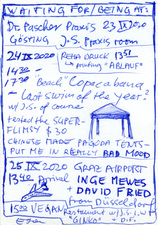 WAITING FOR/BEING AT:
Dr. Pascher Praxis 23 IX 2020
GÖSTING J.S. PRAXIS room
24 IX 2020 REHA DRUCK 13:51
14:30 printing "ABLAUF"
17:30 "Beach" Copacabana
- last swim of the year?
w/ J.S. of course
tested the SUPER-
FLIMSY $30
CHINESE MADE PAGODA TENTS-
PUT ME IN REALLY BAD MOOD
25 IX 2020 GRAZ AIRPORT
13:40 arrival INGE MEWES +
DAVID FRIED
from Düsseldorf
15:00 VEGAN Restaurant w/ J.S., I.M.
"GINKO" + D.F.